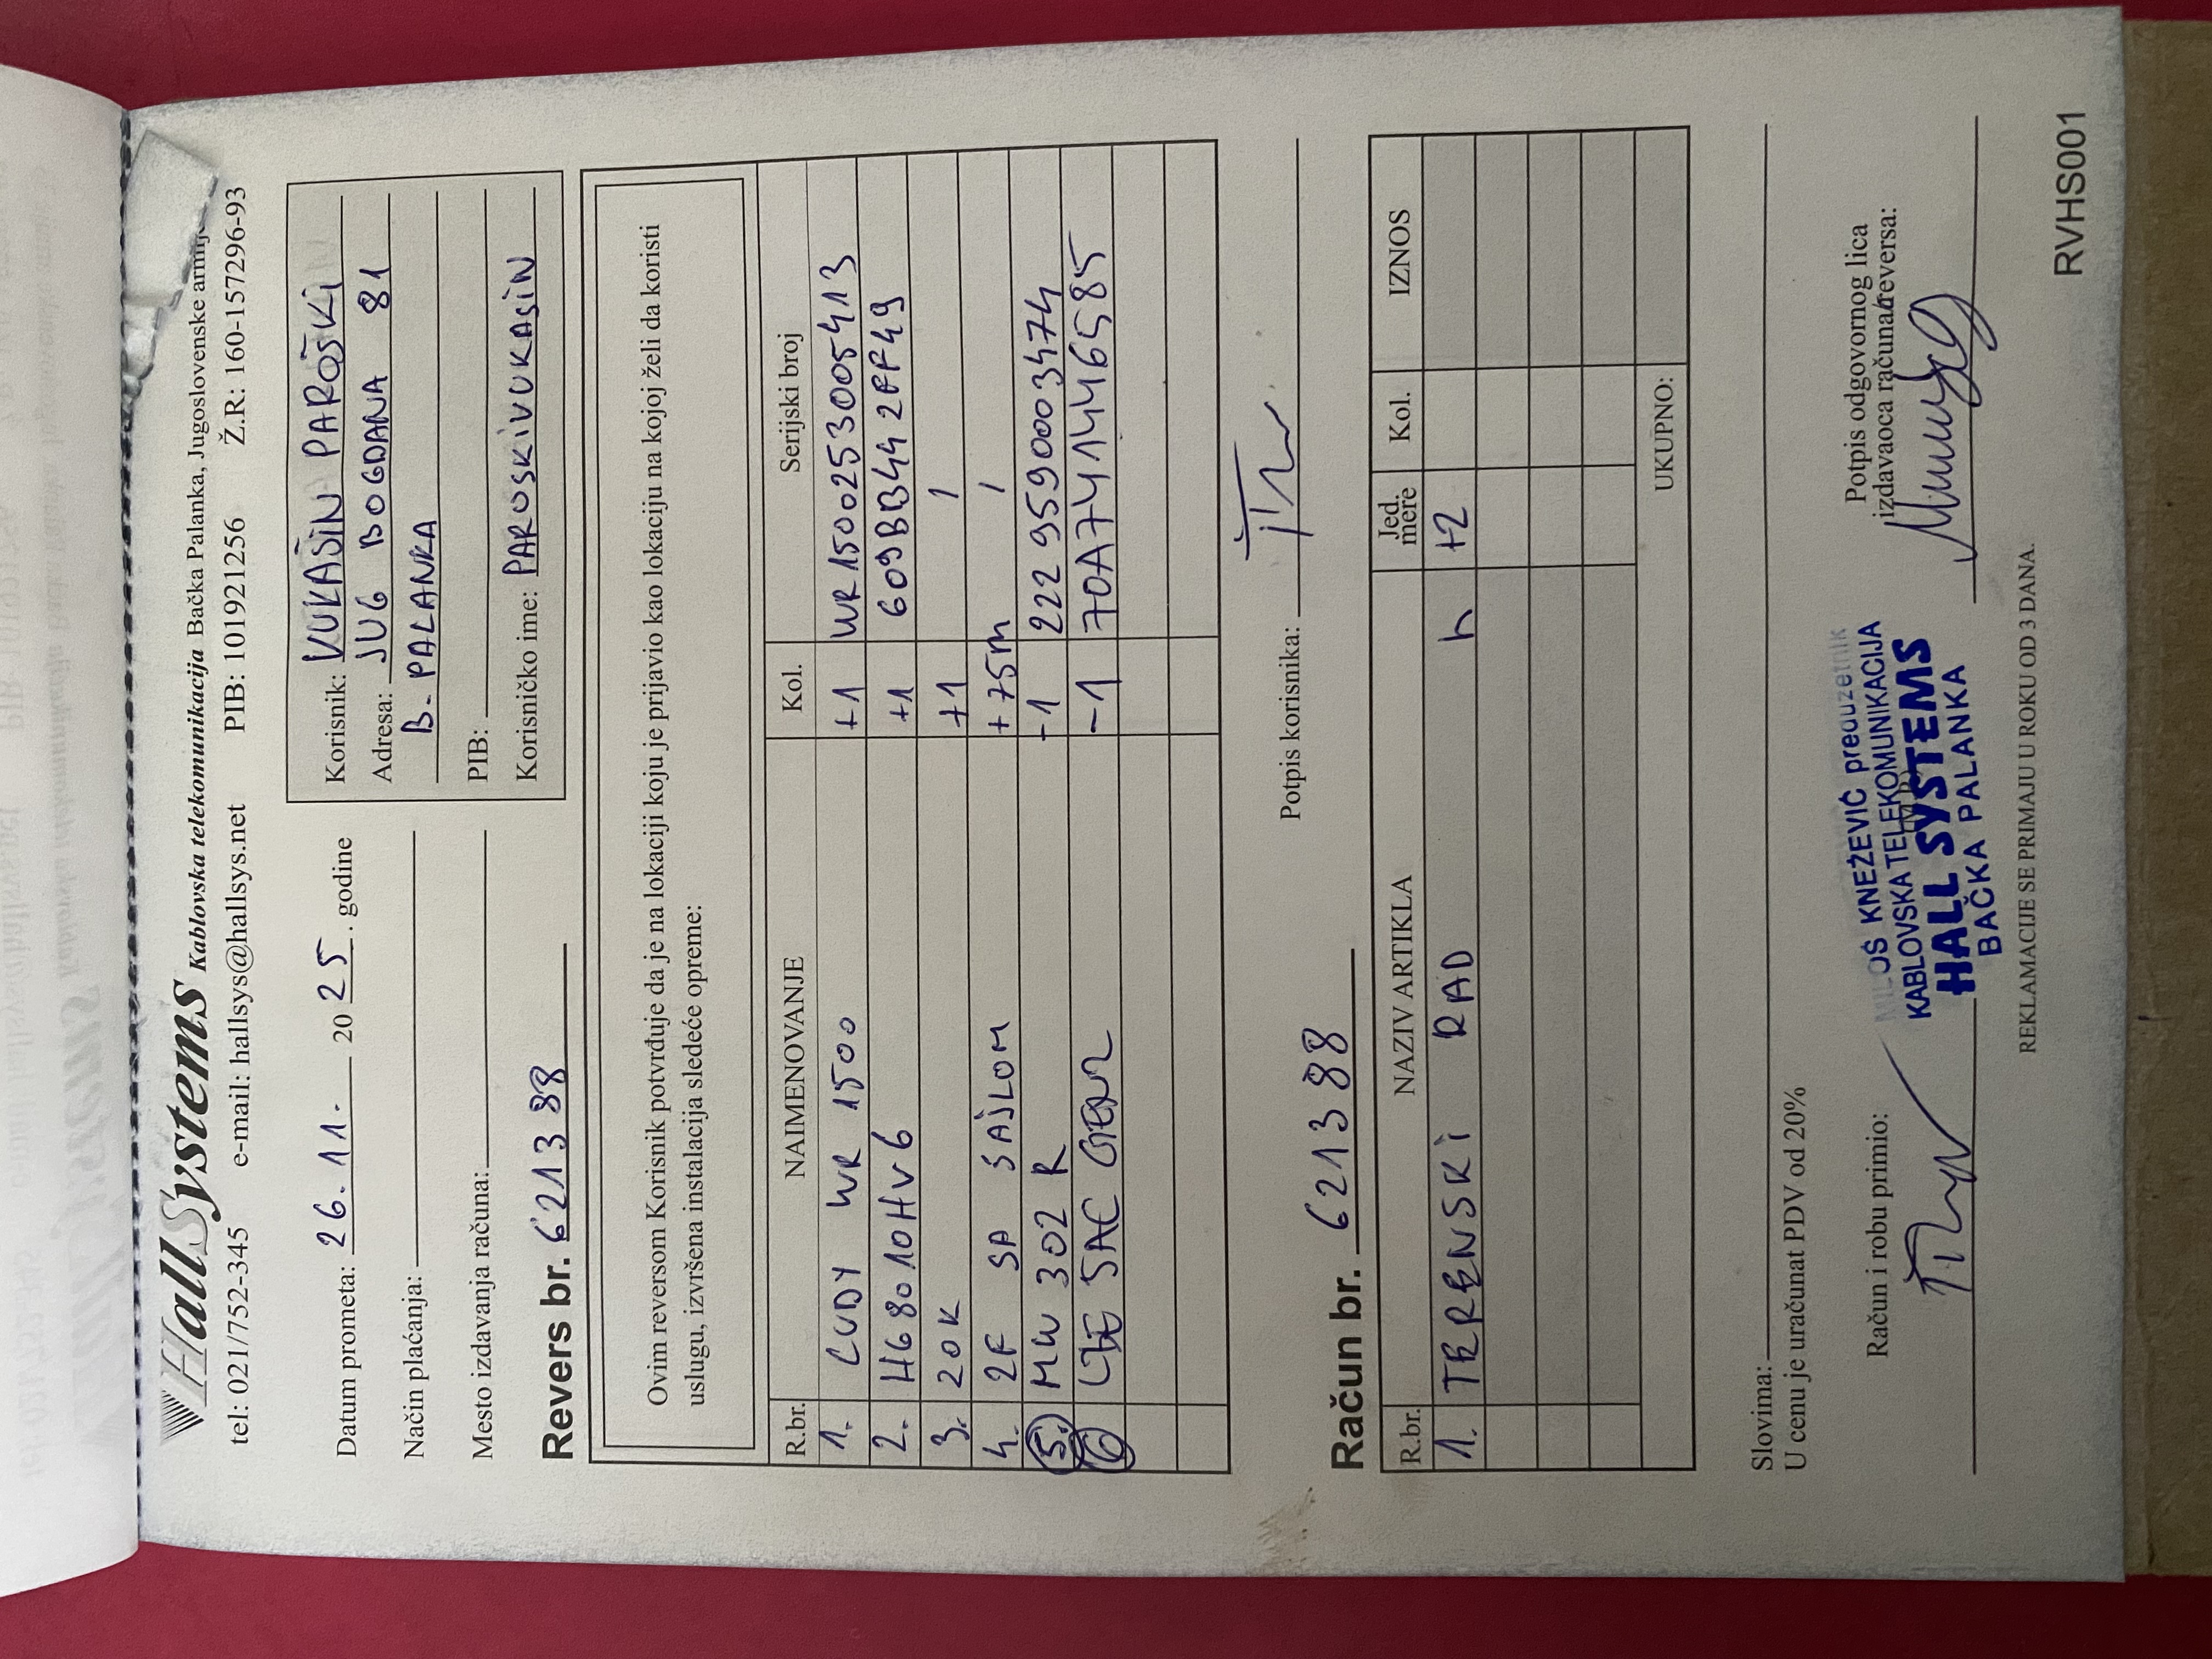 HallSystems Kablovska telekomunikacija Bačka Palanka, Jugoslovenske armije
tel: 021/752-345 e-mail: hallsys@hallsys.net PIB: 101921256 Ž.R.: 160-157296-93
Datum prometa: 26.11. 2025. godine
Način plaćanja:
Mesto izdavanja računa:
Korisnik: VUKAŠIN PAROŠKI
Adresa: JUG BOGDANA 81
B. PALANKA
PIB:
Korisničko ime: PAROSKIVUKASIN
Revers br. 621388
Ovim reversom Korisnik potvrđuje da je na lokaciji koju je prijavio kao lokaciju na kojoj želi da koristi
uslugu, izvršena instalacija sledeće opreme:
R.br. NAIMENOVANJE Kol. Serijski broj
1. CUDY WR 1500 +1 WR15002530005413
2. HG8010Hv6 +1 609BB442FF49
3. 20K +1 /
4. 2F SA SAJLOM +75m /
5. MW 302 R -1 22295590003474
6. LBE 5AC GEN2 -1 70A741446585
Potpis korisnika:
Račun br. 621388
R.br. NAZIV ARTIKLA Jed. mere Kol. IZNOS
1. TERENSKI RAD h +2
UKUPNO:
Slovima:
U cenu je uračunat PDV od 20%
Račun i robu primio:
MILOŠ KNEŽEVIĆ preduzetnik
KABLOVSKA TELEKOMUNIKACIJA
HALL SYSTEMS
BAČKA PALANKA
Potpis odgovornog lica
izdavaoca računa/reversa:
REKLAMACIJE SE PRIMAJU U ROKU OD 3 DANA.
RVHS001